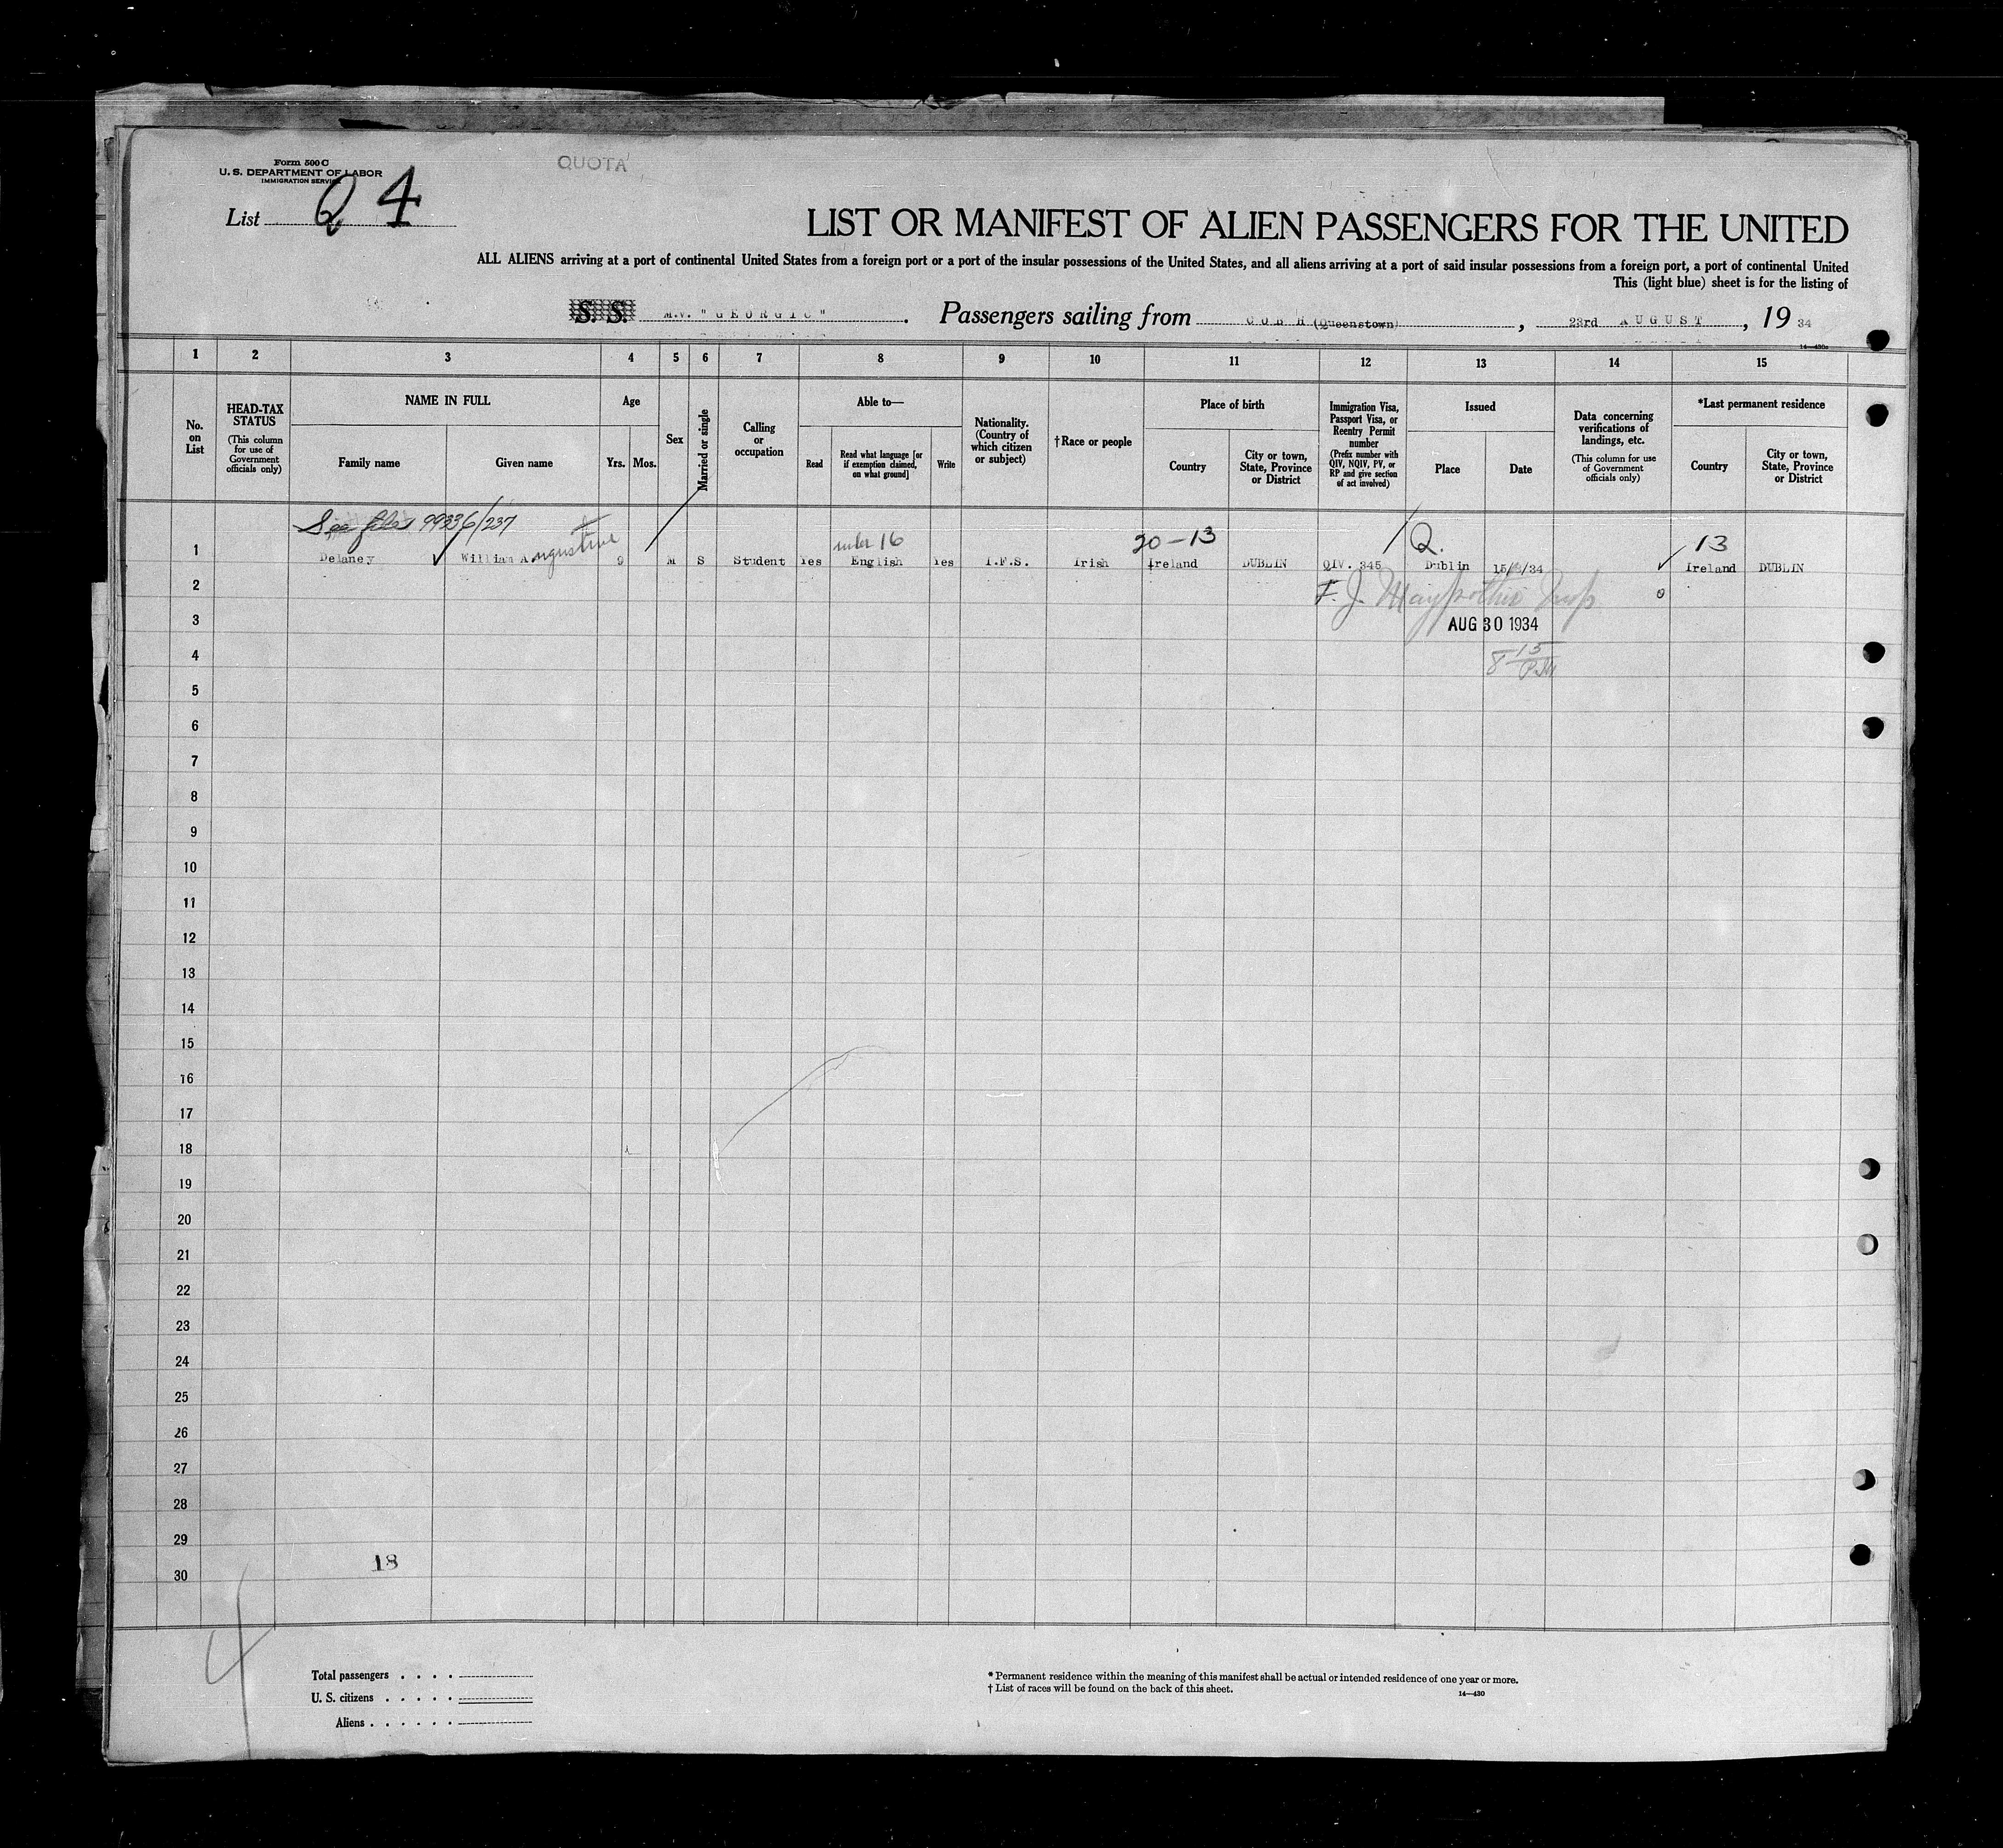 Form 500 C
U. S. DEPARTMENT OF LABOR
IMMIGRATION SERVICE
QUOTA
List Q 4
LIST OR MANIFEST OF ALIEN PASSENGERS FOR THE UNITED
ALL ALIENS arriving at a port of continental United States from a foreign port or a port of the insular possessions of the United States, and all aliens arriving at a port of said insular possessions from a foreign port, a port of continental United
This (light blue) sheet is for the listing of
S. S. M.V. "GEORGIC". Passengers sailing from COBH (Queenstown), 23rd AUGUST, 1934
14—430a
1 2 3 4 5 6 7 8 9 10 11 12 13 14 15
No. on List
HEAD-TAX STATUS
(This column for use of Government officials only)
NAME IN FULL
Family name
Given name
Age
Yrs. Mos.
Sex
Married or single
Calling or occupation
Able to—
Read
Read what language [or if exemption claimed, on what ground]
Write
Nationality. (Country of which citizen or subject)
†Race or people
Place of birth
Country
City or town, State, Province or District
Immigration Visa, Passport Visa, or Reentry Permit number
(Prefix number with QIV, NQIV, PV, or RP and give section of act involved)
Issued
Place
Date
Data concerning verifications of landings, etc.
(This column for use of Government officials only)
*Last permanent residence
Country
City or town, State, Province or District
See files 99336/237
under 16 20-13 Q. 13
1 Delaney William Augustine 9 M S Student Yes English Yes I.F.S. Irish Ireland DUBLIN QIV. 345 Dublin 15/ /34 Ireland DUBLIN
2 F. J. Insp 0
3 AUG 30 1934
4 8 15 P.M.
5
6
7
8
9
10
11
12
13
14
15
16
17
18
19
20
21
22
23
24
25
26
27
28
29
18
30
4
Total passengers . . . .
U. S. citizens . . . . .
Aliens . . . . . .
* Permanent residence within the meaning of this manifest shall be actual or intended residence of one year or more.
† List of races will be found on the back of this sheet.
14—430